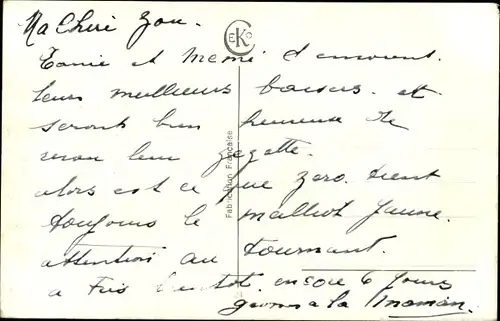 Ma Cheri Zou.
C EKC
Tonie et Mémé t'envoient
leurs meilleurs baisers. et
seront bien heureux de
revoir leur Zezette.
alors est ce que Zero. tient
toujours le maillot jaune.
attention au tournant.
a Tris bientot. encore 6 jours
a la Maman.
Fabrication Française